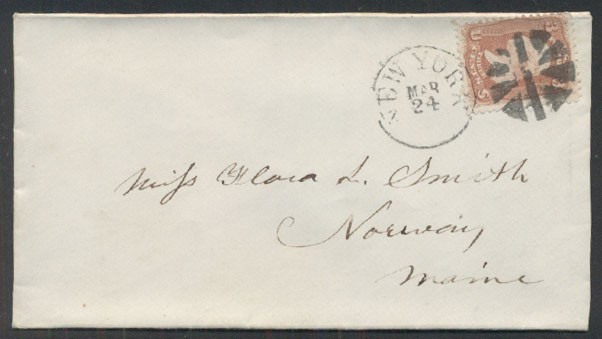 NEW YORK
MAR
24
U S
Miss Flora L. Smith
Norway,
Maine